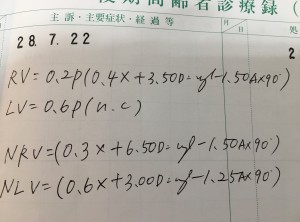 後期高齢者診療録(
主訴・主要症状・経過等
月
日
処
28.7.22
2
RV=0.2p(0.4x+3.50D=cyl-1.50Ax90°)
LV=0.6p(n.c)
NRV=(0.3x+6.50D=cyl-1.50Ax90°)
NLV=(0.6x+3.00D=cyl-1.25Ax90°)